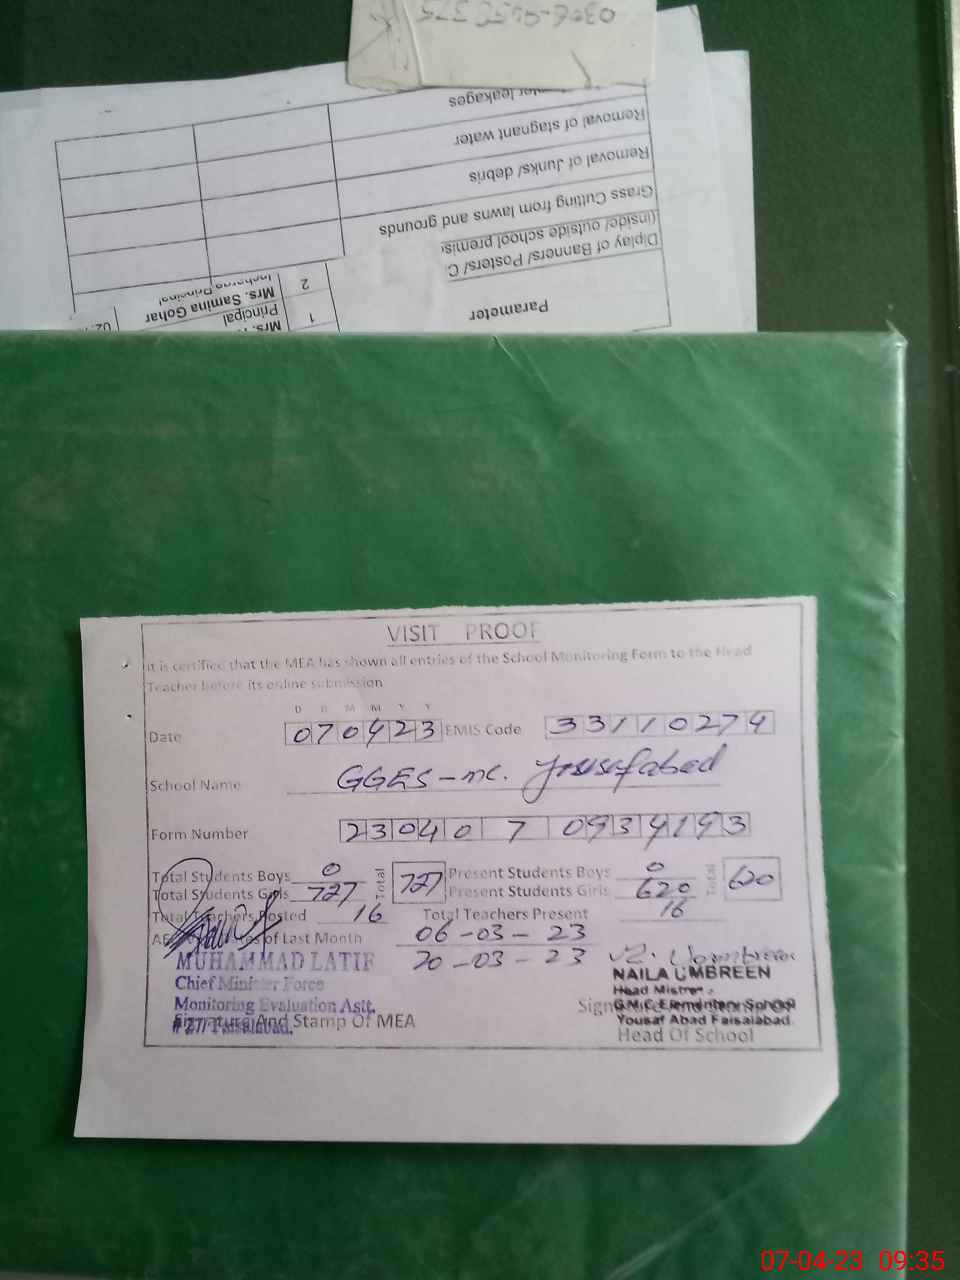 0306-
Removal of stagnant water
Removal of Junks/ debris
Grass Cutting from lawns and grounds
(inside/ outside school
Diplay of Banners/ Posters/
Parameter
2
Mrs. Samina Gohar
1
Principal
VISIT PROOF
It is certified that the MEA has shown all entries of the School Monitoring Form to the Head
Teacher before its online submission
D D M M Y Y
Date 070423 EMIS Code 33110274
School Name GGES-mc. Yousufabad
Form Number 23040 7 0934193
Total Students Boys 0 Total 727 Present Students Boys 0 Total 620
Total Students Girls 727 Present Students Girls 620
Total Teachers Posted 16 Total Teachers Present 16
of Last Month 06-03-23
20-03-23
MUHAMMAD LATIF
Chief Minister Force
Monitoring Evaluation Astt.
Signature And Stamp Of MEA
NAILA UMBREEN
Head Mistress
G.M.C. Elementary School
Yousaf Abad Faisalabad.
Signature And Stamp Of
Head Of School
07-04-23 09:35